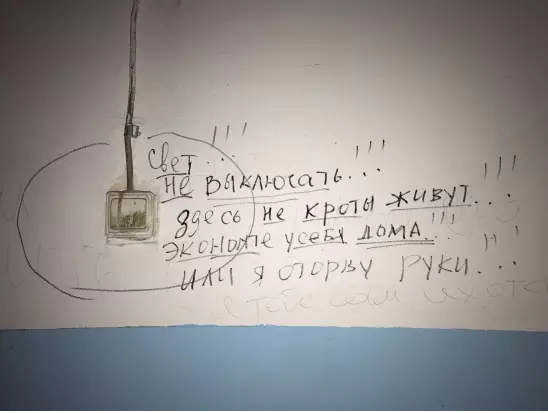 Свет...!!!
Не выключать...!!!
здесь не кроты живут...!!!
экономте у себя дома..!!!
или я оторву руки...!!!
я тебе сам их